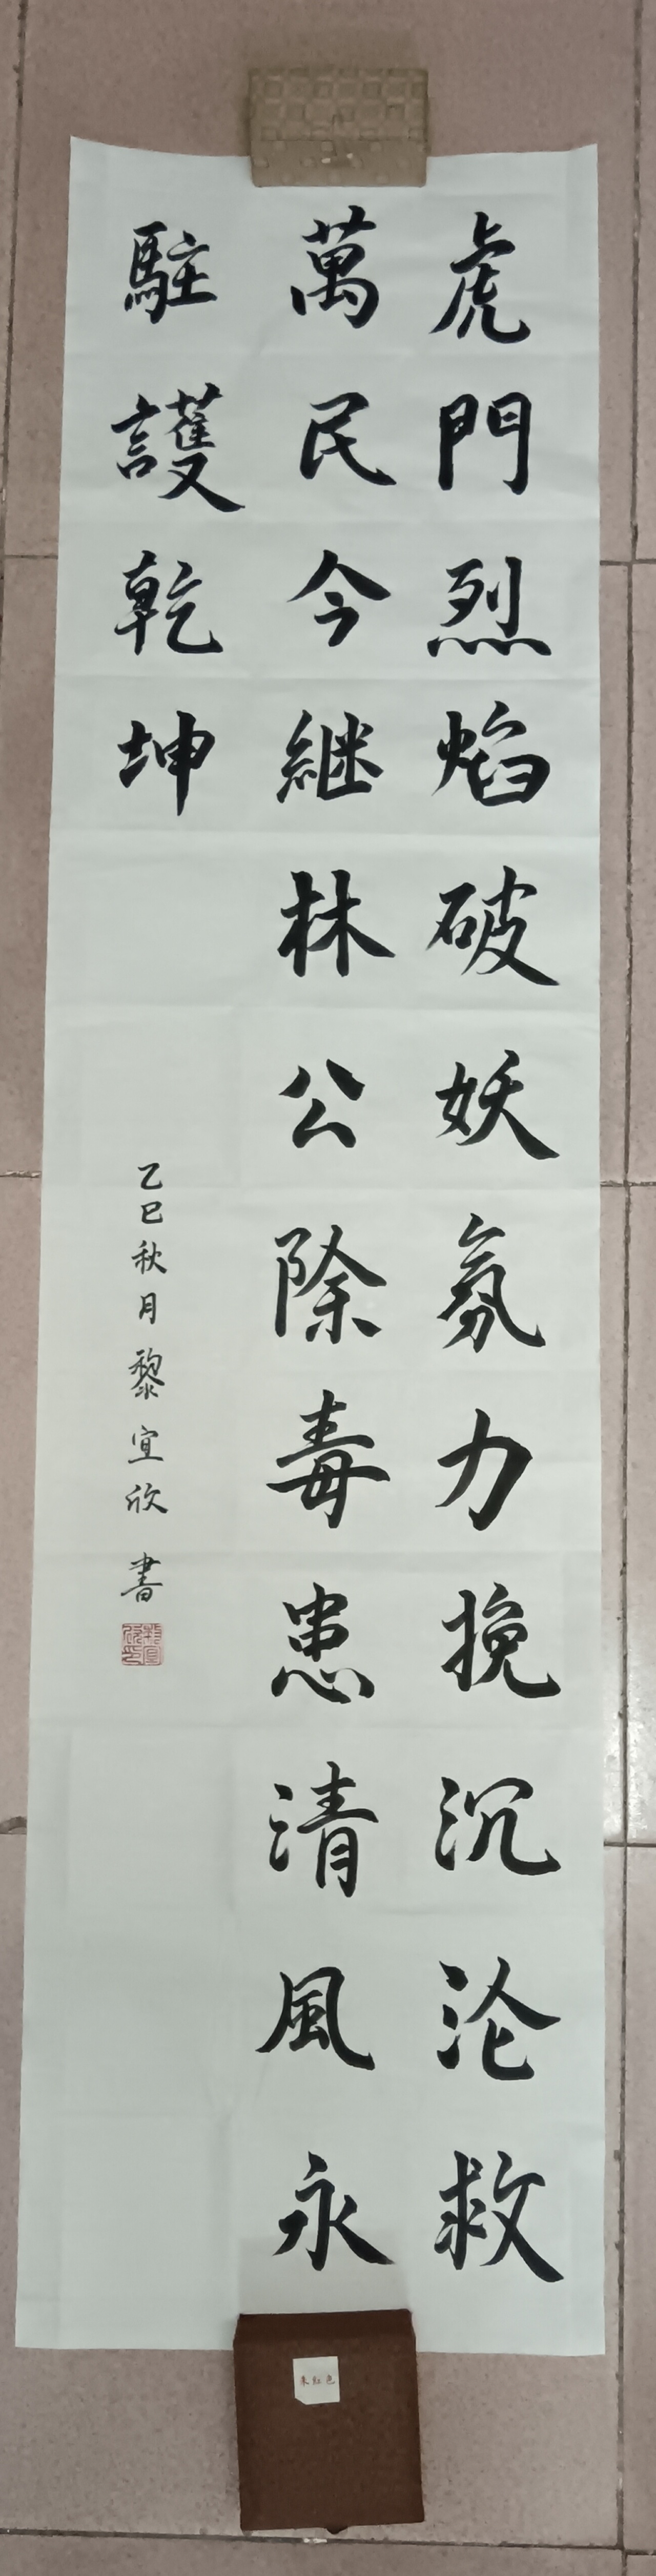 虎門烈焰破妖氛力挽沉沦救
萬民今継林公除毒患清風永
駐護乾坤
乙巳秋月黎宜欣書
朱紅色